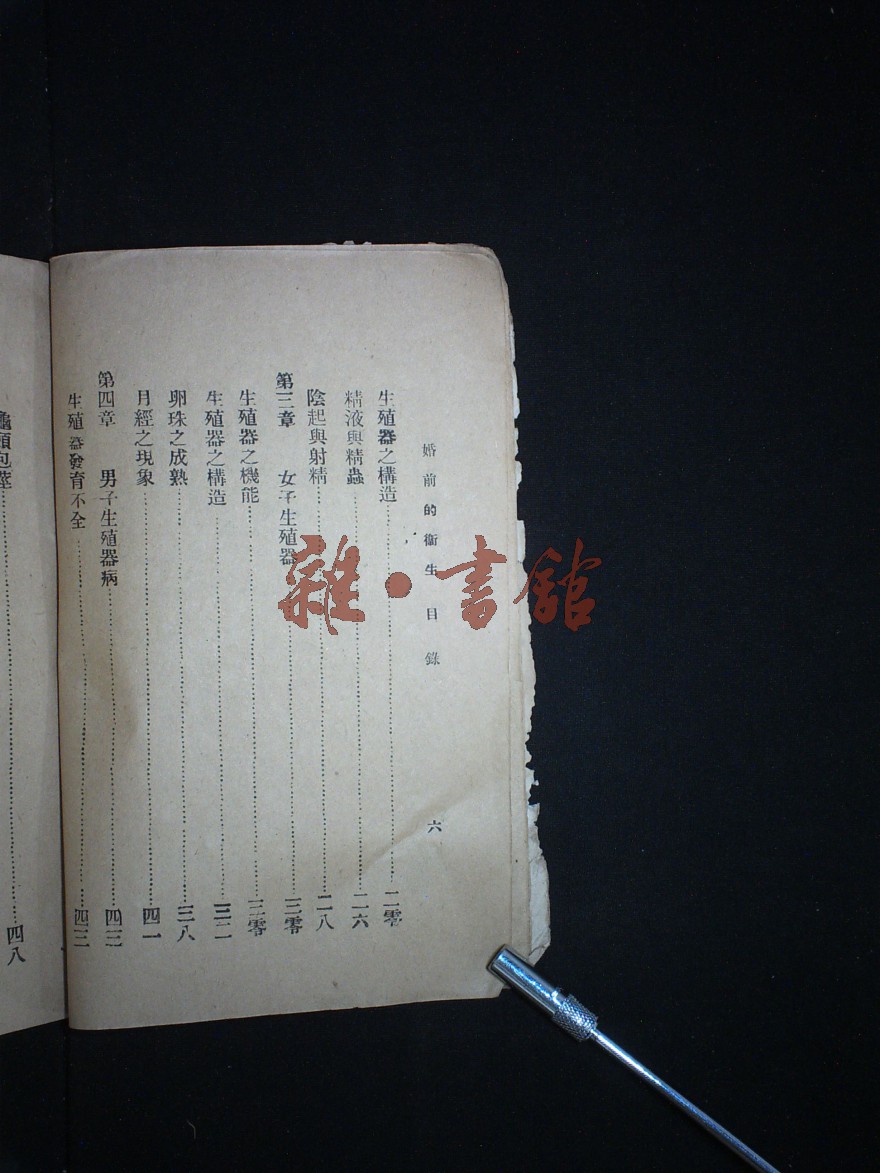 婚前的衞生 目錄 六
生殖器之構造 二零
精液與精蟲 二六
陰起與射精 二八
第三章 女子生殖器 三零
生殖器之機能 三零
生殖器之構造 三二
卵珠之成熟 三八
月經之現象 四一
第四章 男子生殖器病 四三
生殖器發育不全 四三
龜頭包莖 四八
雜·書館